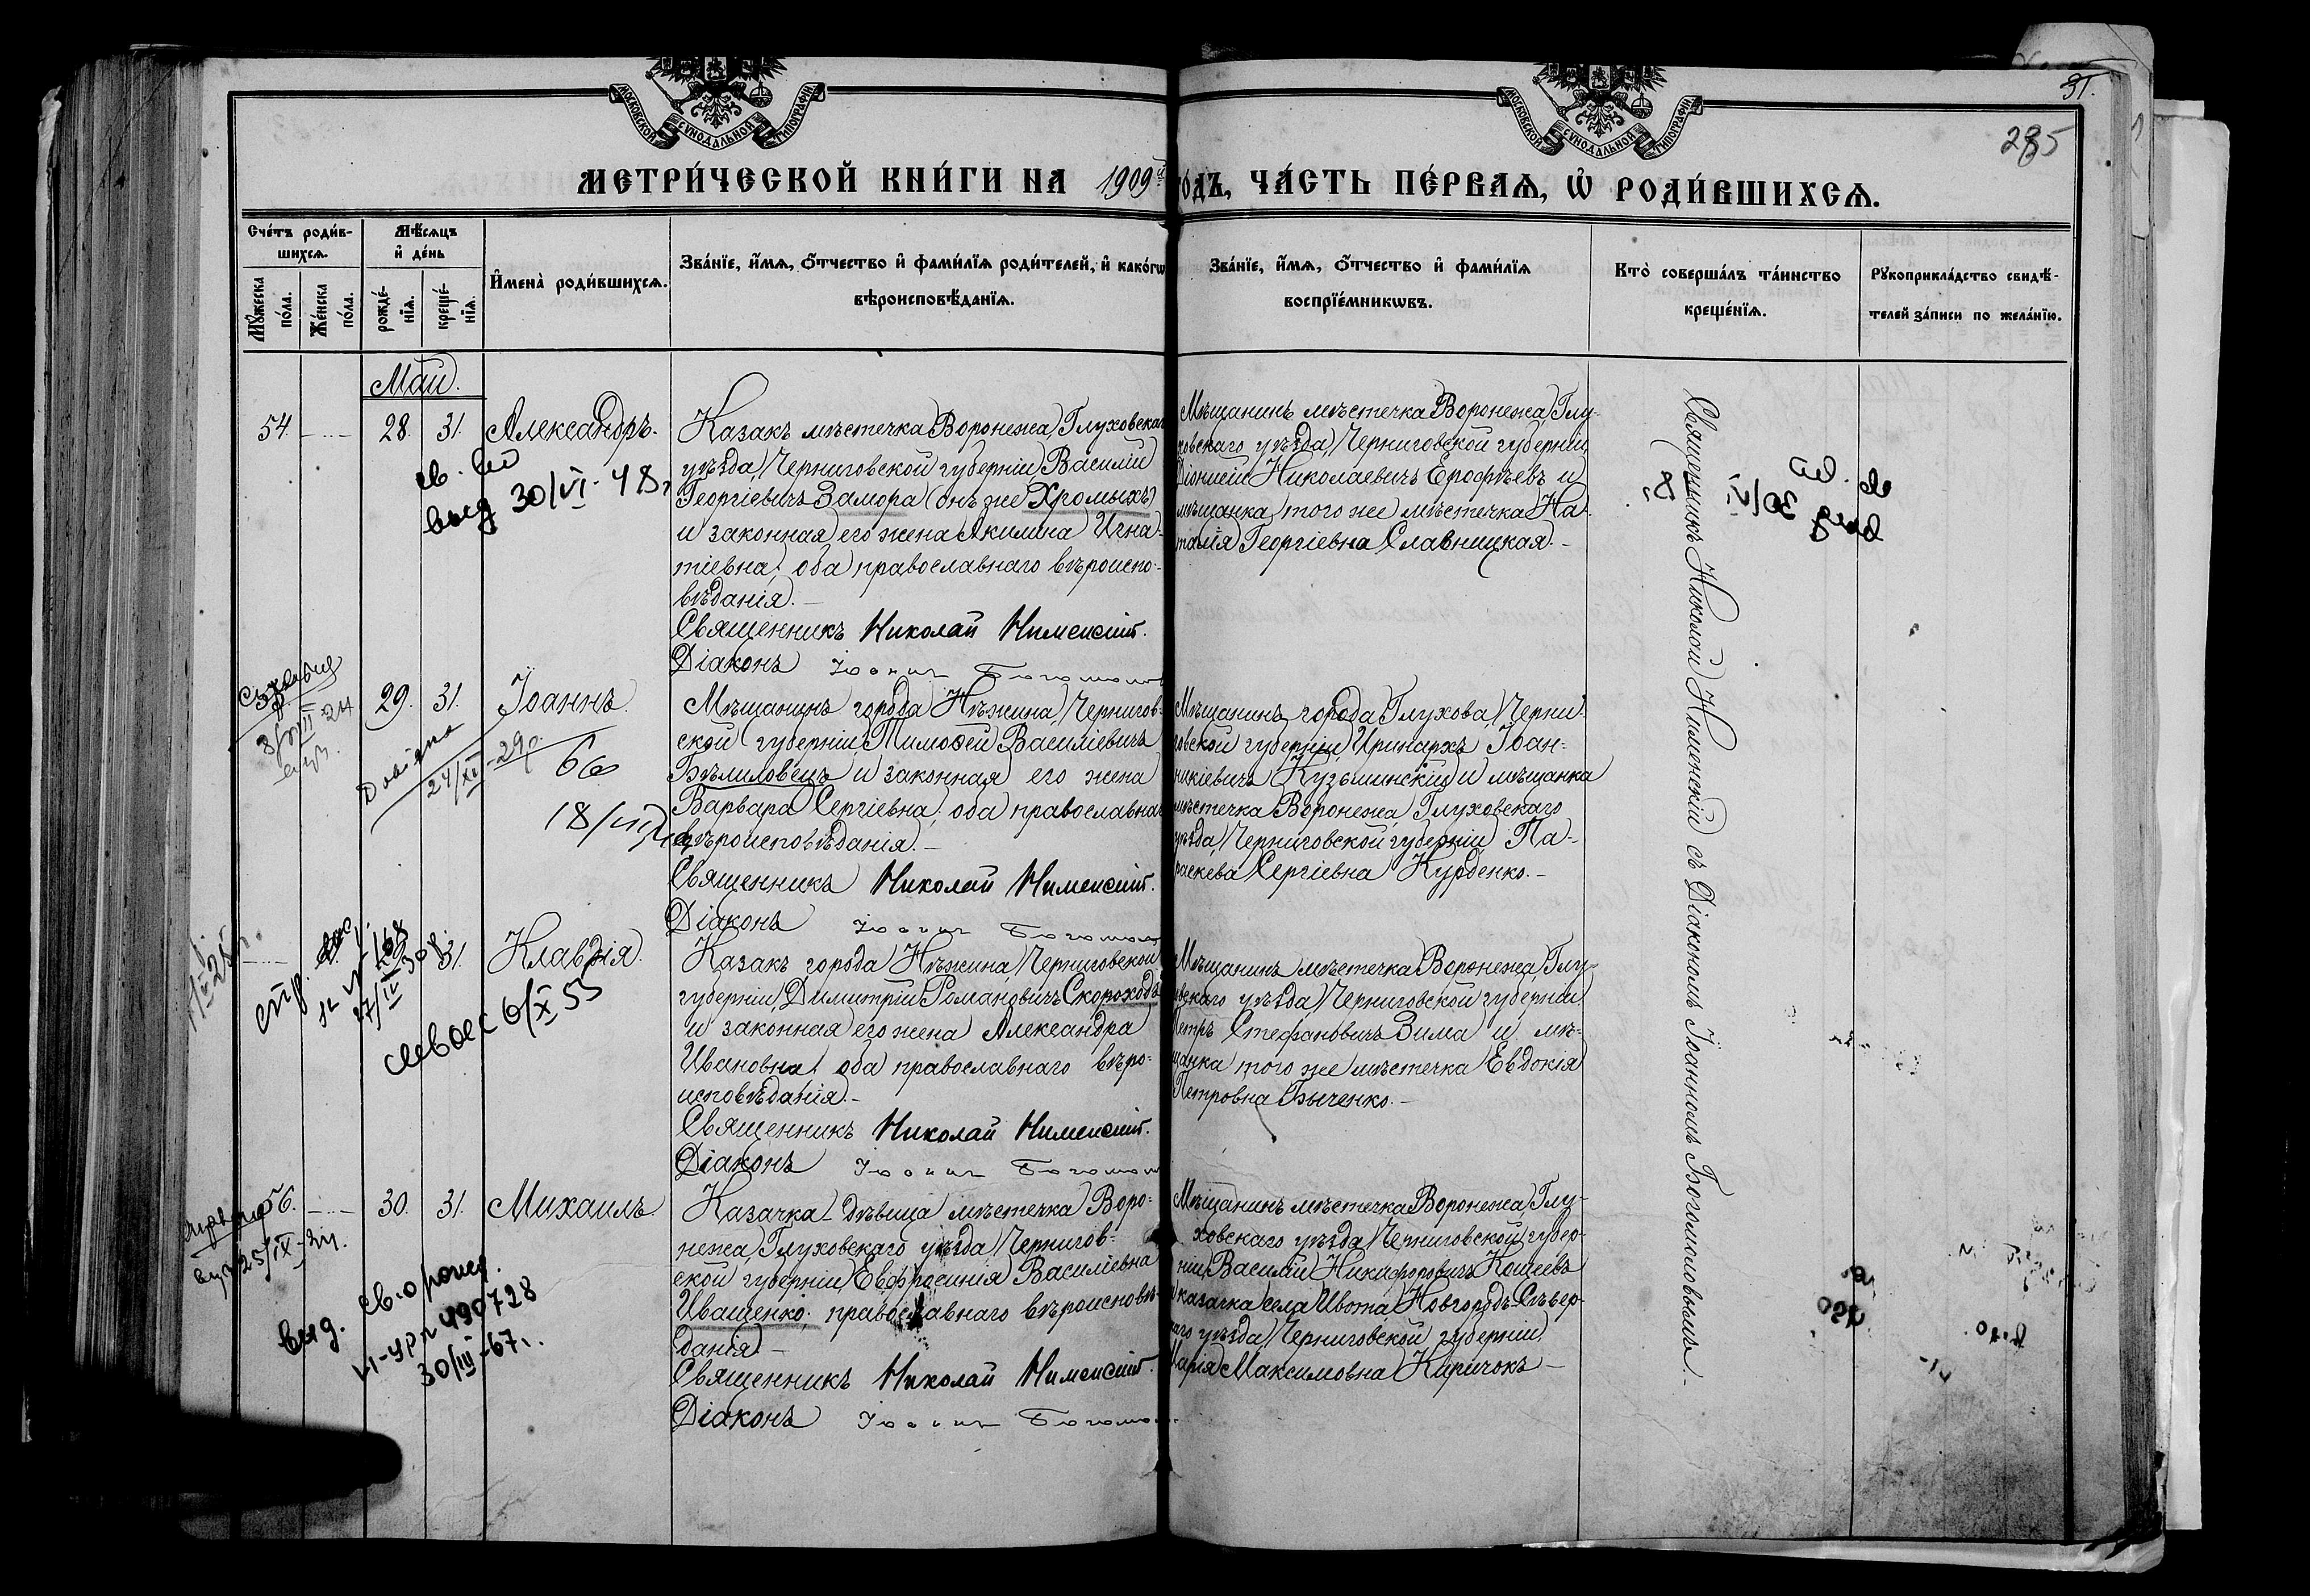 МОСКОВСКОЙ СѴНОДАЛЬНОЙ ТИПОГРАФІИ
МОСКОВСКОЙ СѴНОДАЛЬНОЙ ТИПОГРАФІИ
31.
285
МЕТРИ́ЧЕСКОЙ КНИ́ГИ НА 1909й ГО́ДЪ, ЧА́СТЬ ПЕ́РВАѦ, Ѡ҆ РОДИ́ВШИХСѦ.
Сче́тъ роди́в-
шихсѧ.
Мꙋ́жеска по́ла.
Же́нска по́ла.
Мѣ́сѧцъ
и҆ де́нь
рожде́-
нїѧ.
креще́-
нїѧ.
И҆мена̀ роди́вшихсѧ.
Зва́нїе, и҆́мѧ, ѻ҆́тчество и҆ фами́лїѧ роди́телей, и҆ како́гѡ
вѣроисповѣ́данїѧ.
Зва́нїе, и҆́мѧ, ѻ҆́тчество и҆ фами́лїѧ
воспрїе́мникѡвъ.
Кто̀ соверша́лъ та́инство
креще́нїѧ.
Рꙋкоприкла́дство свидѣ́-
телей за́писи по жела́нїю.
Май.
54. 28. 31. Александръ.
Казакъ мѣстечка Воронежа, Глуховскаго
уѣзда, Черниговской губерніи, Василій
Георгіевичъ Замора (онъ же Хромыхъ)
и законная его жена Акилина Игна-
тіевна, оба православнаго вѣроиспо-
вѣданія.
Священникъ Николай Нименскій.
Діаконъ
Мѣщанинъ мѣстечка Воронежа, Глу-
ховскаго уѣзда, Черниговской губерніи,
Діонисій Николаевичъ Ерофѣевъ и
мѣщанка того же мѣстечка На-
талія Георгіевна Славницкая.
выд 30/VI-48г
29. 31. Іоаннъ.
Мѣщанинъ города Нѣжина, Чернигов-
ской губерніи Тимоѳей Василіевичъ
Бѣлиловецъ и законная его жена
Варвара Сергіевна, оба православнаго
вѣроисповѣданія.
Священникъ Николай Нименскій.
Діаконъ
Мѣщанинъ города Глухова, Черни-
говской губерніи Иринархъ Іоан-
никіевичъ Кузьминскій и мѣщанка
мѣстечка Воронежа, Глуховскаго
уѣзда, Черниговской губерніи Па-
раскева Сергіевна Курденко.
24/XII-29р.
31. Клавдія.
Казакъ города Нѣжина, Черниговской
губерніи, Димитрій Романовичъ Скороходъ
и законная его жена Александра
Ивановна, оба православнаго вѣро-
исповѣданія.
Священникъ Николай Нименскій.
Діаконъ
Мѣщанинъ мѣстечка Воронежа, Глу-
ховскаго уѣзда, Черниговской губерніи
Петръ Стефановичъ Зима и мѣ-
щанка того же мѣстечка Евдокія
Петровна Быченко.
6/X 55
56. 30. 31. Михаилъ.
Казачка-дѣвица мѣстечка Воро-
нежа, Глуховскаго уѣзда, Чернигов-
ской губерніи, Евфросинія Василіевна
Иващенко, православнаго вѣроисповѣ-
данія.
Священникъ Николай Нименскій.
Діаконъ
Мѣщанинъ мѣстечка Воронежа, Глу-
ховскаго уѣзда, Черниговской губер-
ніи, Василій Никифоровичъ Кощеевъ
и казачка села Ивота, Новгородъ-Сѣвер-
скаго уѣзда, Черниговской губерніи,
Марія Максимовна Киричокъ
25/IX-24.
выд. св. о рожд.
490728
30/III-67г.
Священникъ Николай Нименскій съ Діакономъ Іоанномъ Богомоловымъ.